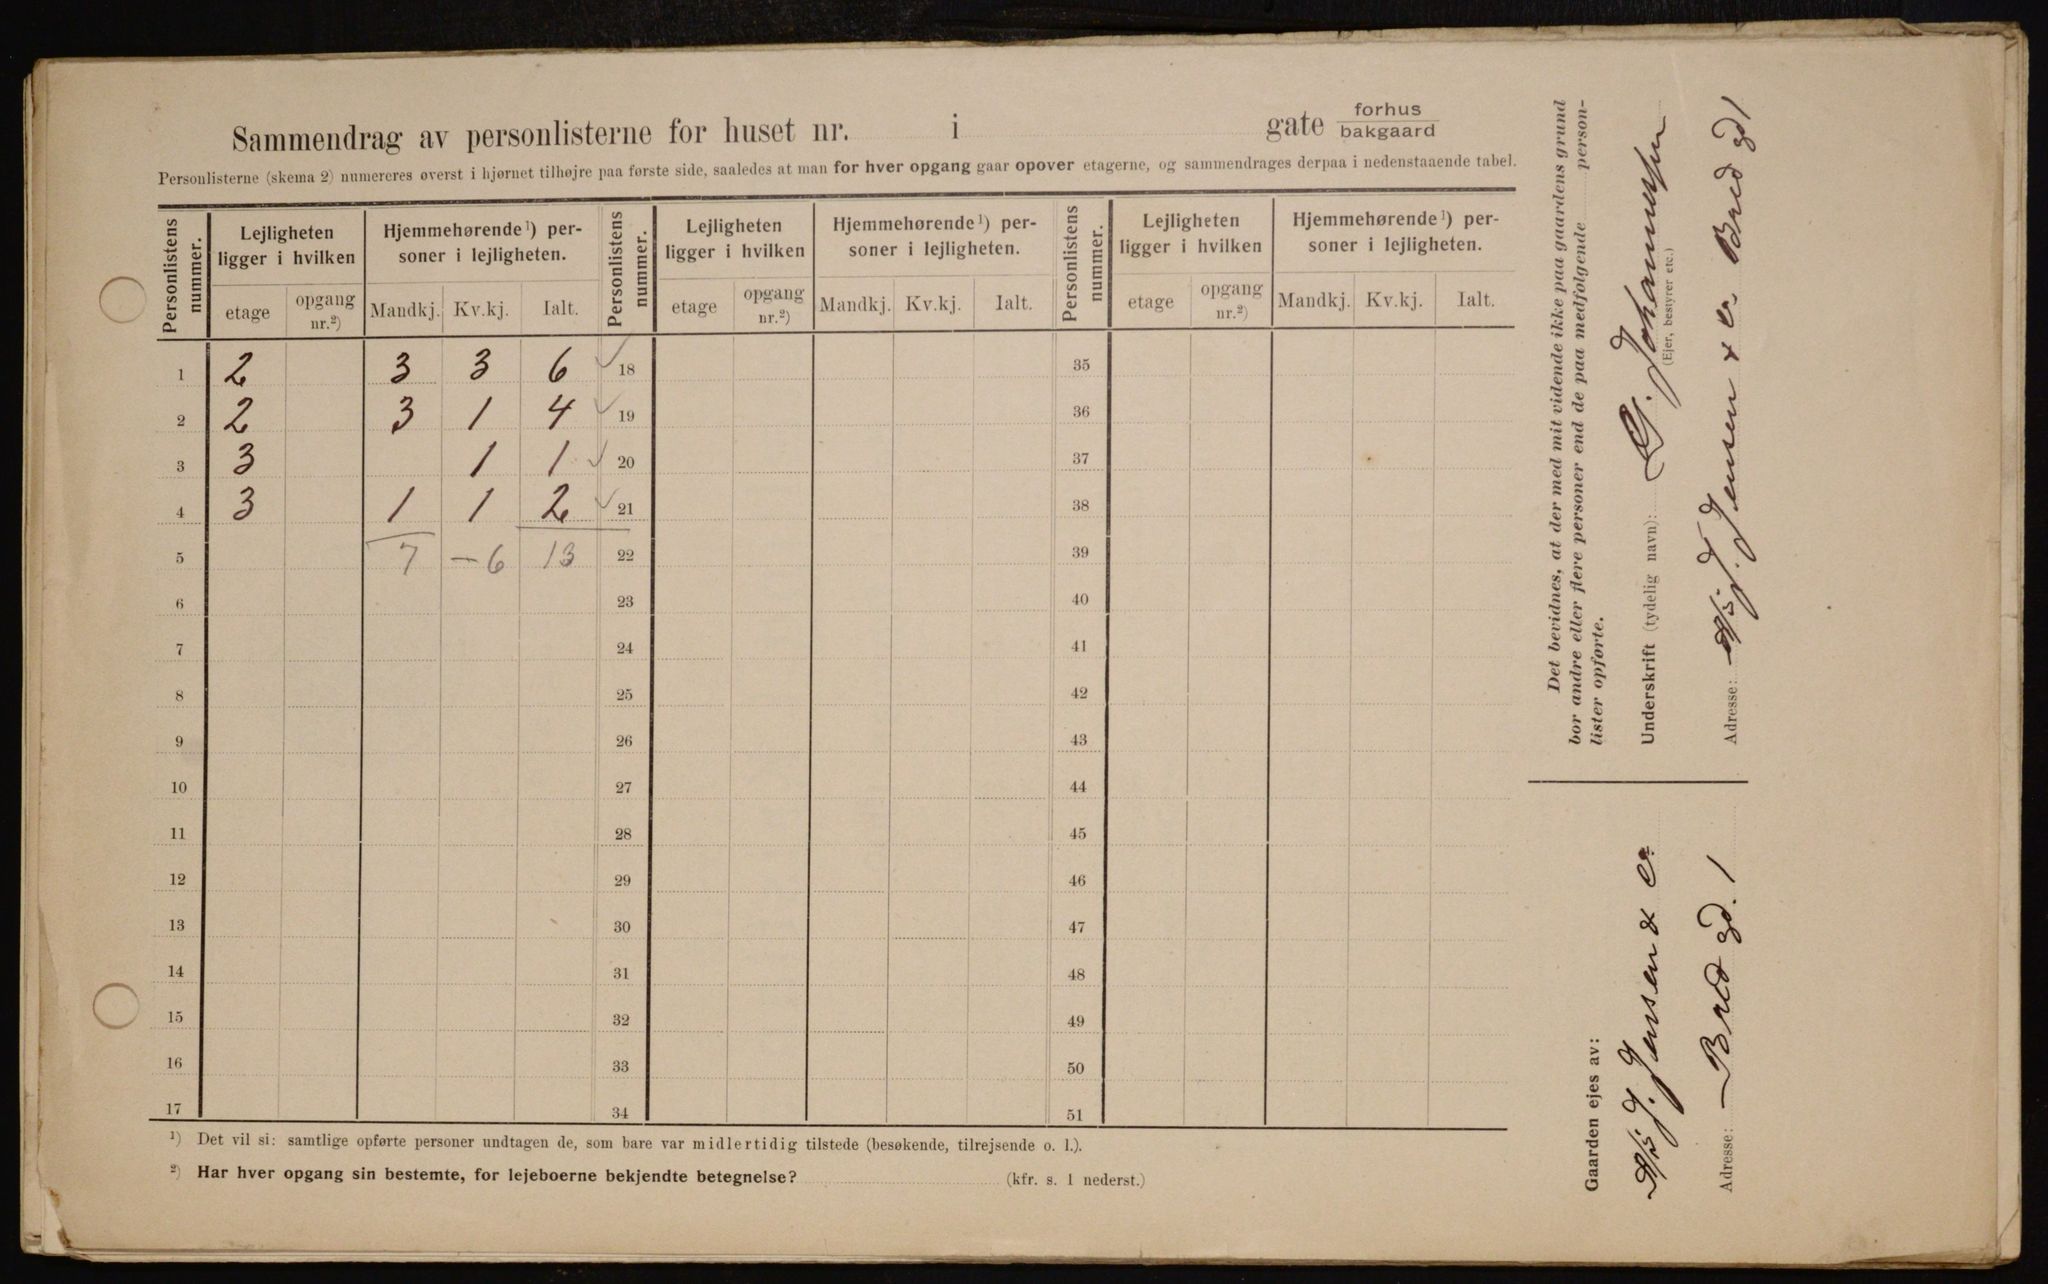 Sammendrag av personlisterne for huset nr. i gate forhus
bakgaard
Personlisterne (skema 2) numereres øverst i hjørnet tilhøjre paa første side, saaledes at man for hver opgang gaar opover etagerne, og sammendrages derpaa i nedenstaaende tabel.
Personlistens nummer. Lejligheten ligger i hvilken Hjemmehørende¹) personer i lejligheten. Personlistens nummer. Lejligheten ligger i hvilken Hjemmehørende¹) personer i lejligheten. Personlistens nummer. Lejligheten ligger i hvilken Hjemmehørende¹) personer i lejligheten.
etage opgang nr.²) Mandkj. Kv.kj. Ialt. etage opgang nr.²) Mandkj. Kv.kj. Ialt. etage opgang nr.²) Mandkj. Kv.kj. Ialt.
1 2 3 3 6 ✓ 18 35
2 2 3 1 4 ✓ 19 36
3 3 1 1 ✓ 20 37
4 3 1 1 2 ✓ 21 38
5 7 – 6 13 22 39
6 23 40
7 24 41
8 25 42
9 26 43
10 27 44
11 28 45
12 29 46
13 30 47
14 31 48
15 32 49
16 33 50
17 34 51
¹) Det vil si: samtlige opførte personer undtagen de, som bare var midlertidig tilstede (besøkende, tilrejsende o. l.).
²) Har hver opgang sin bestemte, for lejeboerne bekjendte betegnelse? (kfr. s. 1 nederst.)
Det bevidnes, at der med mit vidende ikke paa gaardens grund
bor andre eller flere personer end de paa medfølgende person-
lister opførte.
Underskrift (tydelig navn): G. Johannessen
(Ejer, bestyrer etc.)
Adresse: J. Jensen & Co Bredgd 1
Gaarden ejes av:
J. Jensen & Co
Adresse: Bredgd. 1